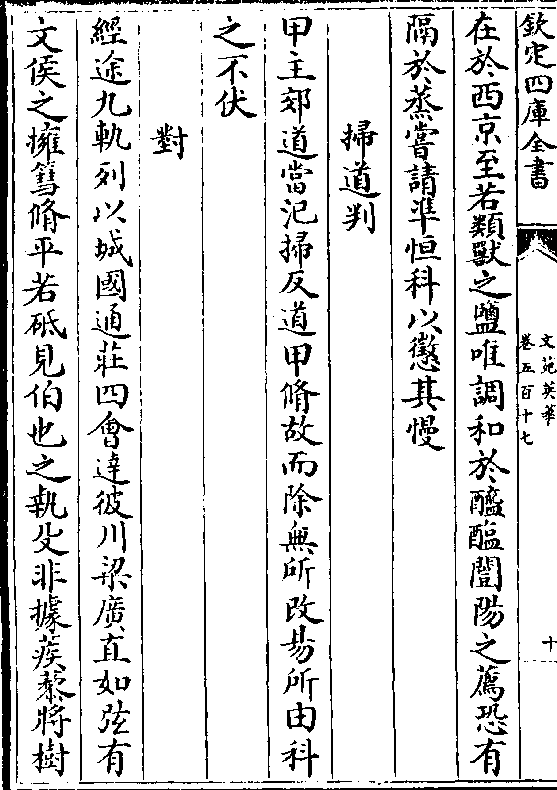 欽定四庫全書
文苑英華
卷五百十七
十
在於西京至若類獸之鹽唯調和於醯醢誾陽之薦恐有
隔於蒸嘗請準恒科以懲其慢
掃道判
甲主郊道當汜掃反道甲脩故而除無所改易所由科
之不伏
對
經途九軌列以城國通莊四會達彼川梁廣直如弦有
文侯之擁篲脩平若砥見伯也之執殳非據蒺藜將樹